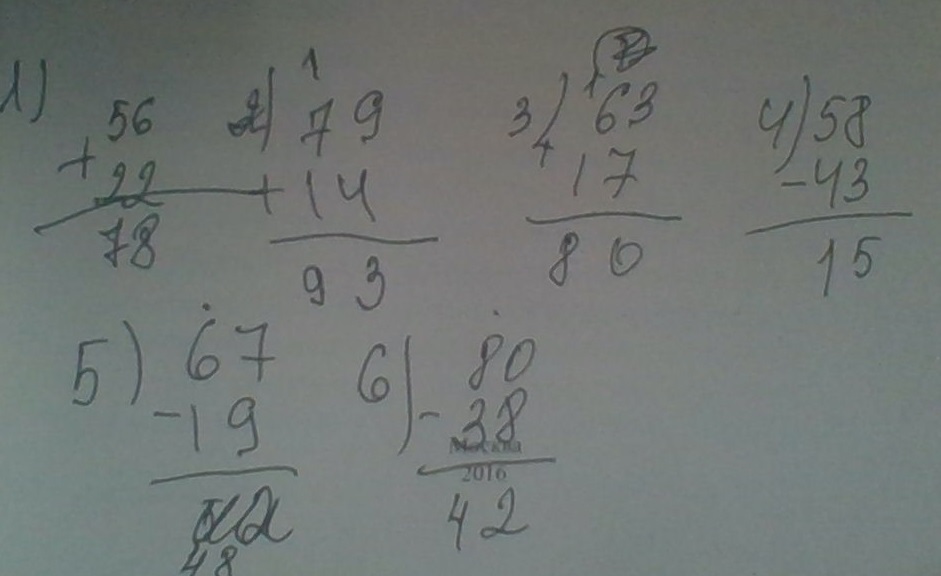 1) 56 + 22 78
2) 1 79 + 14 93
3) 1 63 + 17 80
4) 58 - 43 15
5) 67 - 19 48
6) 80 - 38 42
Москва
2016